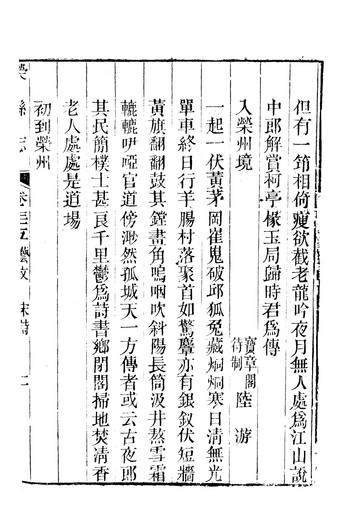 但有一筇相倚瘦欲截老龍吟夜月無人處爲江山說
中郎解賞柯亭椽玉局歸時君爲傳
入榮州境
寶章閣待制陸游
一起一伏黃茅岡崔嵬破邱狐兔藏炯炯寒日清無光
單車終日行羊腸村落聚首如驚麞亦有銀釵伏短牆
黃旗翻翻鼓其鏜畫角嗚咽吹斜陽長筒汲井熬雪霜
轆轆咿啞官道傍渺然孤城天一方傳者或云古夜郎
其民簡樸士甚良千里鬱爲詩書鄉閉閤掃地焚清香
老人處處是道場
初到榮州
榮縣志
卷三五藝文
宋詩
二